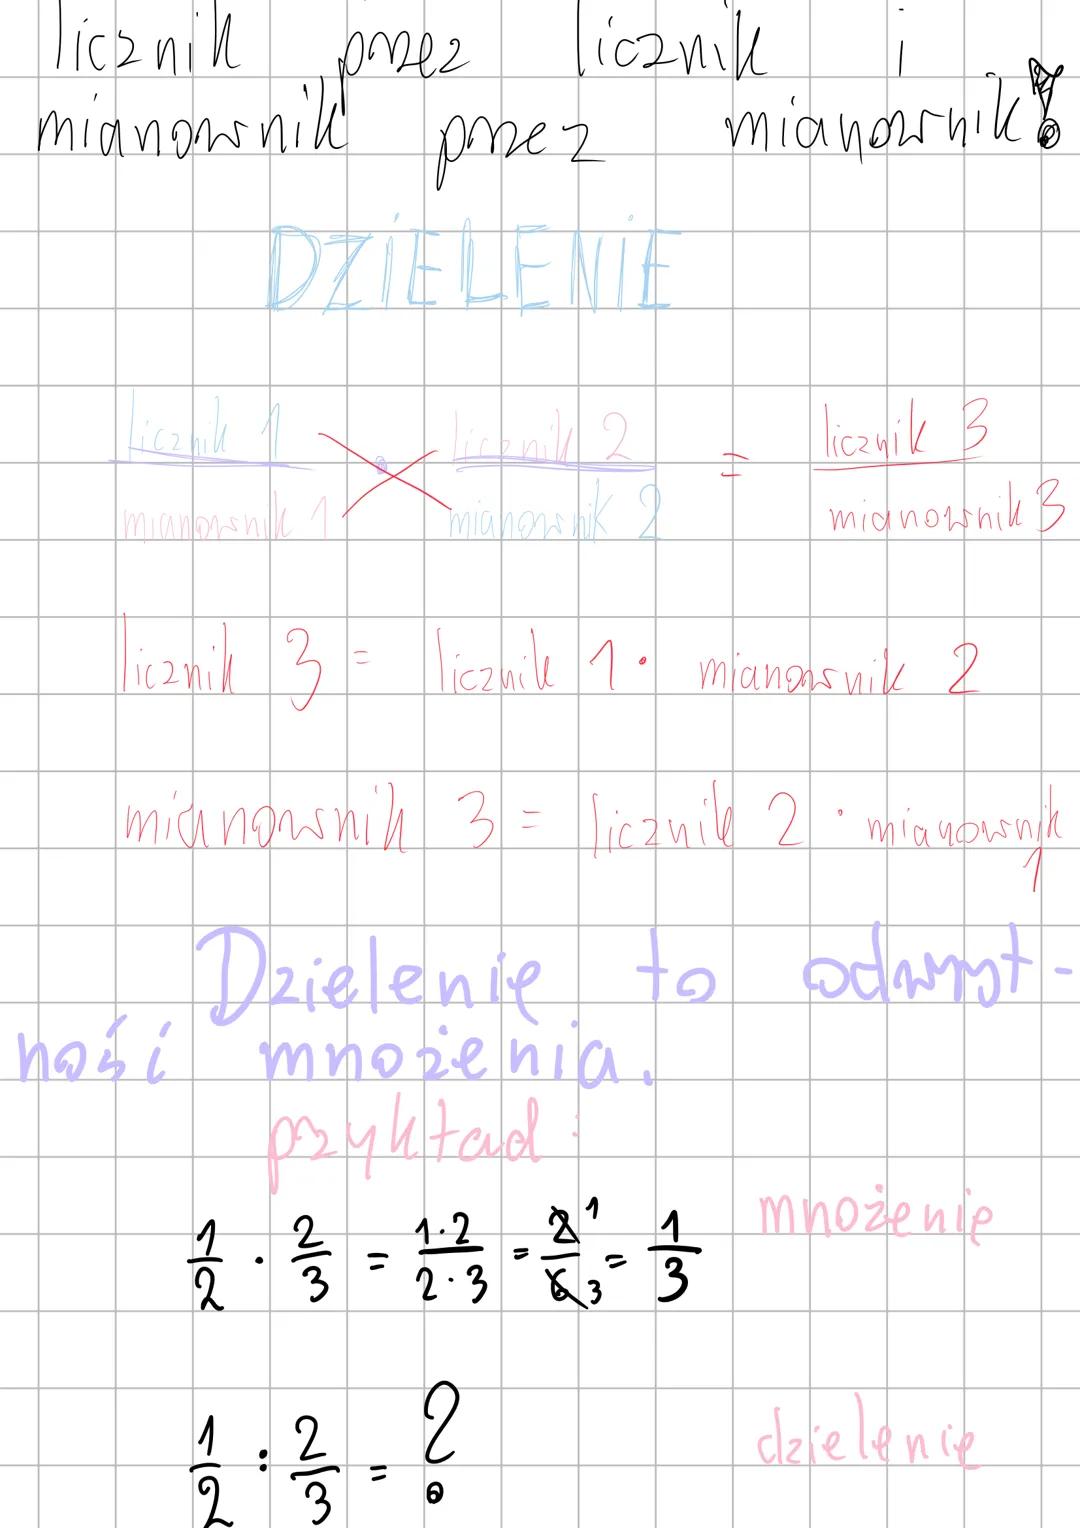 licznik przez licznik i
mianownik przez mianownik!
DZIELENIE
licznik 1 / mianownik 1 : licznik 2 / mianownik 2 = licznik 3 / mianownik 3
licznik 3 = licznik 1 · mianownik 2
mianownik 3 = licznik 2 · mianownik
1
Dzielenie to odwrot-
ność mnożenia.
przykład:
mnożenie
1/2 · 2/3 = 1·2/2·3 = 2/6 1/3 = 1/3
1/2 : 2/3 = ?
dzielenie